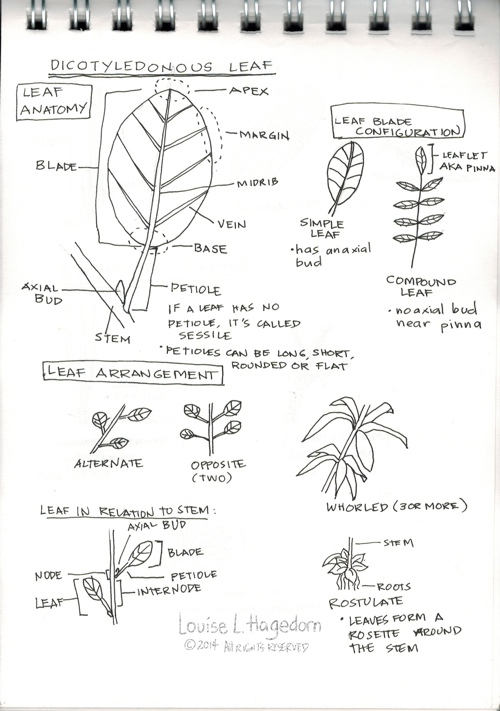 DICOTYLEDONOUS LEAF
LEAF
ANATOMY
APEX
MARGIN
BLADE
MIDRIB
VEIN
BASE
AXIAL
BUD
PETIOLE
IF A LEAF HAS NO
PETIOLE, IT'S CALLED
SESSILE
• PETIOLES CAN BE LONG, SHORT,
ROUNDED OR FLAT
STEM
LEAF BLADE
CONFIGURATION
LEAFLET
AKA PINNA
SIMPLE
LEAF
• has an axial
bud
COMPOUND
LEAF
• no axial bud
near pinna
LEAF ARRANGEMENT
ALTERNATE
OPPOSITE
(TWO)
WHORLED (3 OR MORE)
LEAF IN RELATION TO STEM:
AXIAL BUD
BLADE
NODE
PETIOLE
INTERNODE
LEAF
STEM
ROOTS
ROSTULATE
• LEAVES FORM A
ROSETTE AROUND
THE STEM
Louise L. Hagedorn
©2014 All RIGHTS RESERVED